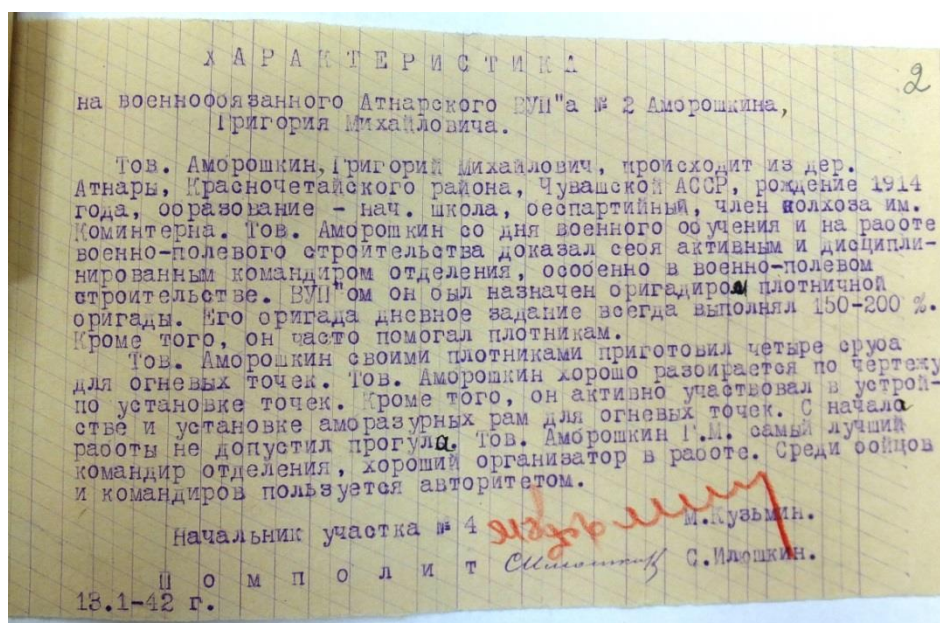 2
ХАРАКТЕРИСТИКА
на военнообязанного Атнарского ВУП"а № 2 Аморошкина,
Григория Михайловича.
Тов. Аморошкин, Григорий Михайлович, происходит из дер.
Атнары, Красночетайского района, Чувашской АССР, рождение 1914
года, образование - нач. школа, беспартийный, член колхоза им.
Коминтерна. Тов. Аморошкин со дня военного обучения и на работе
военно-полевого строительства доказал себя активным и дисципли-
нированным командиром отделения, особенно в военно-полевом
строительстве. ВУП"ом он был назначен бригадиром плотничной
бригады. Его бригада дневное задание всегда выполнял 150-200 %.
Кроме того, он часто помогал плотникам.
Тов. Аморошкин своими плотниками приготовил четыре сруба
для огневых точек. Тов. Аморошкин хорошо разбирается по чертежу
по установке точек. Кроме того, он активно участвовал в устрой-
стве и установке аморазурных рам для огневых точек. С начала
работы не допустил прогула. Тов. Аморошкин Г.М. самый лучший
командир отделения, хороший организатор в работе. Среди бойцов
и командиров пользуется авторитетом.
Начальник участка № 4 М.Кузьмин.
Помполит С.Илюшкин.
13.1-42 г.